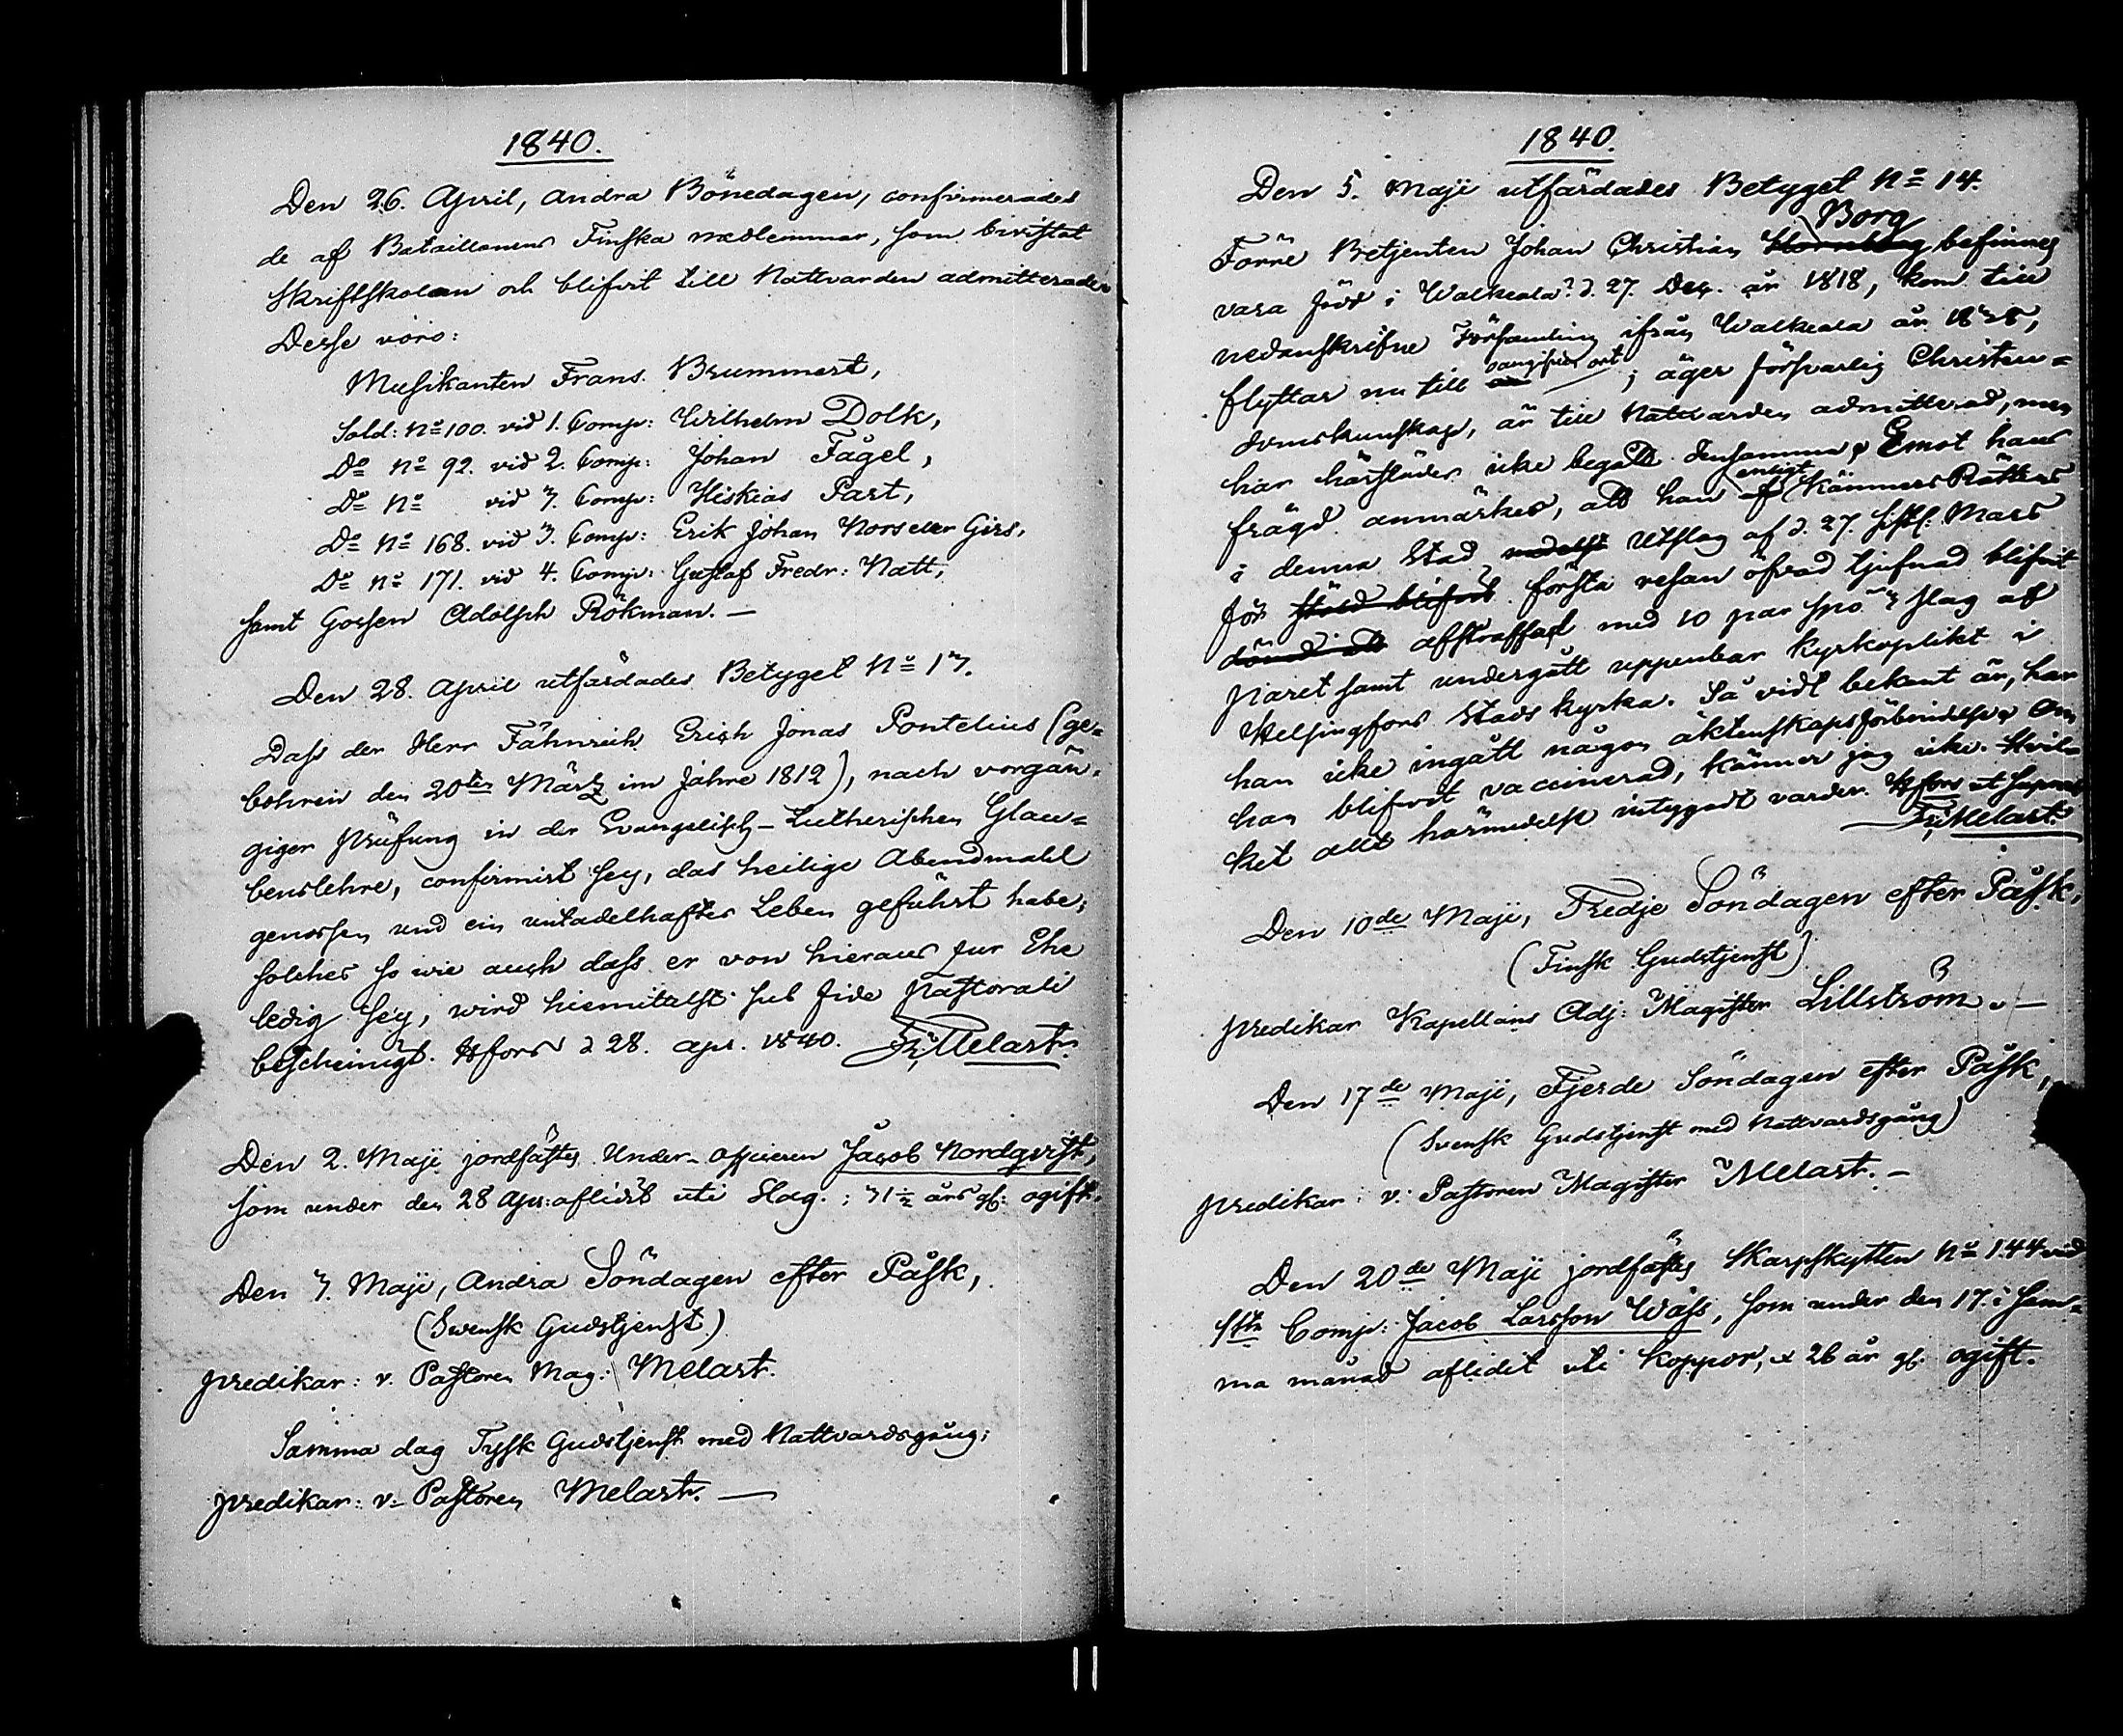 1840.
Den 26. April, andra Bönedagen, confirmerades
de af Bataillonens Finska medlemmar, som bivistat
Skriftskolan och blifvit till Nattvarden admitterade.
Desse voro:
Musikanten Frans Brummert,
Sold: No 100. vid 1. Comp: Wilhelm Dolk,
Do No 92. vid 2. Comp: Johan Fågel,
Do No vid 3. Comp: Hiskias Part,
Do No 168. vid 3. Comp: Erik Johan Nors eller Girs,
Do No 171. vid 4. Comp: Gustaf Fredr: Natt,
samt Gossen Adolph Rökman. —
Den 28. April utfärdades Betyget No 13.
Dass der Herr Fähnrich Erich Jonas Pontelius (ge=
bohren den 20ten März im Jahre 1812), nach vorgän-
giger Prüfung in der Evangelisch-Lutherischen Glau=
benslehre, confirmirt sey, das heilige Abendmahl
genossen und ein untadelhaftes Leben geführt habe;
solches so wie auch dass er von hieraus zur Ehe
ledig sey, wird hiemittelst sub fide Pastorali
bescheinigt. Hfors d 28. apr. 1840. Fr: Melart.
Den 2. Maji jordfästes Under-officeren Jacob Nordqvist,
som under den 28 Apr: aflidit uti Slag.; 31 1/2 års gl: ogift.
Den 3. Maji, Andra Söndagen efter Påsk,
(Svensk Gudstjenst)
predikar: v. Pastoren Mag: Melart.
Samma dag Tysk Gudstjenst med Nattvardsgång;
predikar: v. Pastoren Melart. —
1840.
Den 5. Maji utfärdades Betyget No 14.
Förre Betjenten Johan Christian Borg befinnes
vara född i Walkeala? d. 27. Dec. år 1818, kom till
nedanskrifne Församling ifrån Walkeala år 1838,
flyttar nu till ort; äger försvarlig Christen=
domskunskap, är till Nattvarden admitterad, men
har härstädes icke begått densamma. Emot hans
frägd anmärkes, att han enligt Kämners Rättens
i denna Stad medelst Utslag af d. 27. sistl: Mars
för stöld blifvit första resan öfvad tjufnad blifvit
dömd att afstraffad med 10 par spö 3 slag af
paret samt undergått uppenbar kyrkoplikt i
Helsingfors Stads kyrka. Så vidt bekant är, har
han icke ingått någon äktenskapsförbindelse. Om
han blifvit vaccinerad, känner jag icke. Hvil-
ket allt härmedelst intygadt varder. Hfors ut supra
Fr: Melart.
Den 10de Maji, Tredje Söndagen efter Påsk,
(Finsk Gudstjenst)
predikar Kapellans Adj: Magister Lillström. —
Den 17de Maji, Fjerde Söndagen efter Påsk,
(Svensk Gudstjenst med Nattvardsgång)
predikar: v. Pastoren Magister Melart. —
Den 20de Maji jordfästes Skarpskytten No 144 vid
1sta Comp: Jacob Larsson Wass, som under den 17. i sam-
ma månad aflidit uti koppor, 26 år gl. ogift.